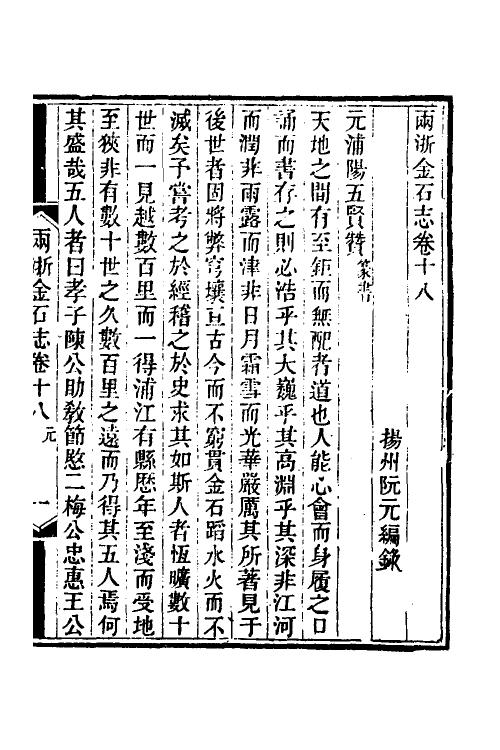 兩浙金石志卷十八
揚州阮元編錄
元浦陽五賢贊篆書
天地之間有至鉅而無配者道也人能心會而身履之口
誦而書存之則必浩乎其大巍乎其高淵乎其深非江河
而潤非雨露而津非日月霜雪而光華嚴厲其所著見于
後世者固將弊穹壤亘古今而不窮貫金石蹈水火而不
滅矣予嘗考之於經稽之於史求其如斯人者恆曠數十
世而一見越數百里而一得浦江有縣歷年至淺而受地
至狹非有數十世之久數百里之遠而乃得其五人焉何
其盛哉五人者曰孝子陳公助教節愍二梅公忠惠王公
兩浙金石志卷十八 元 一